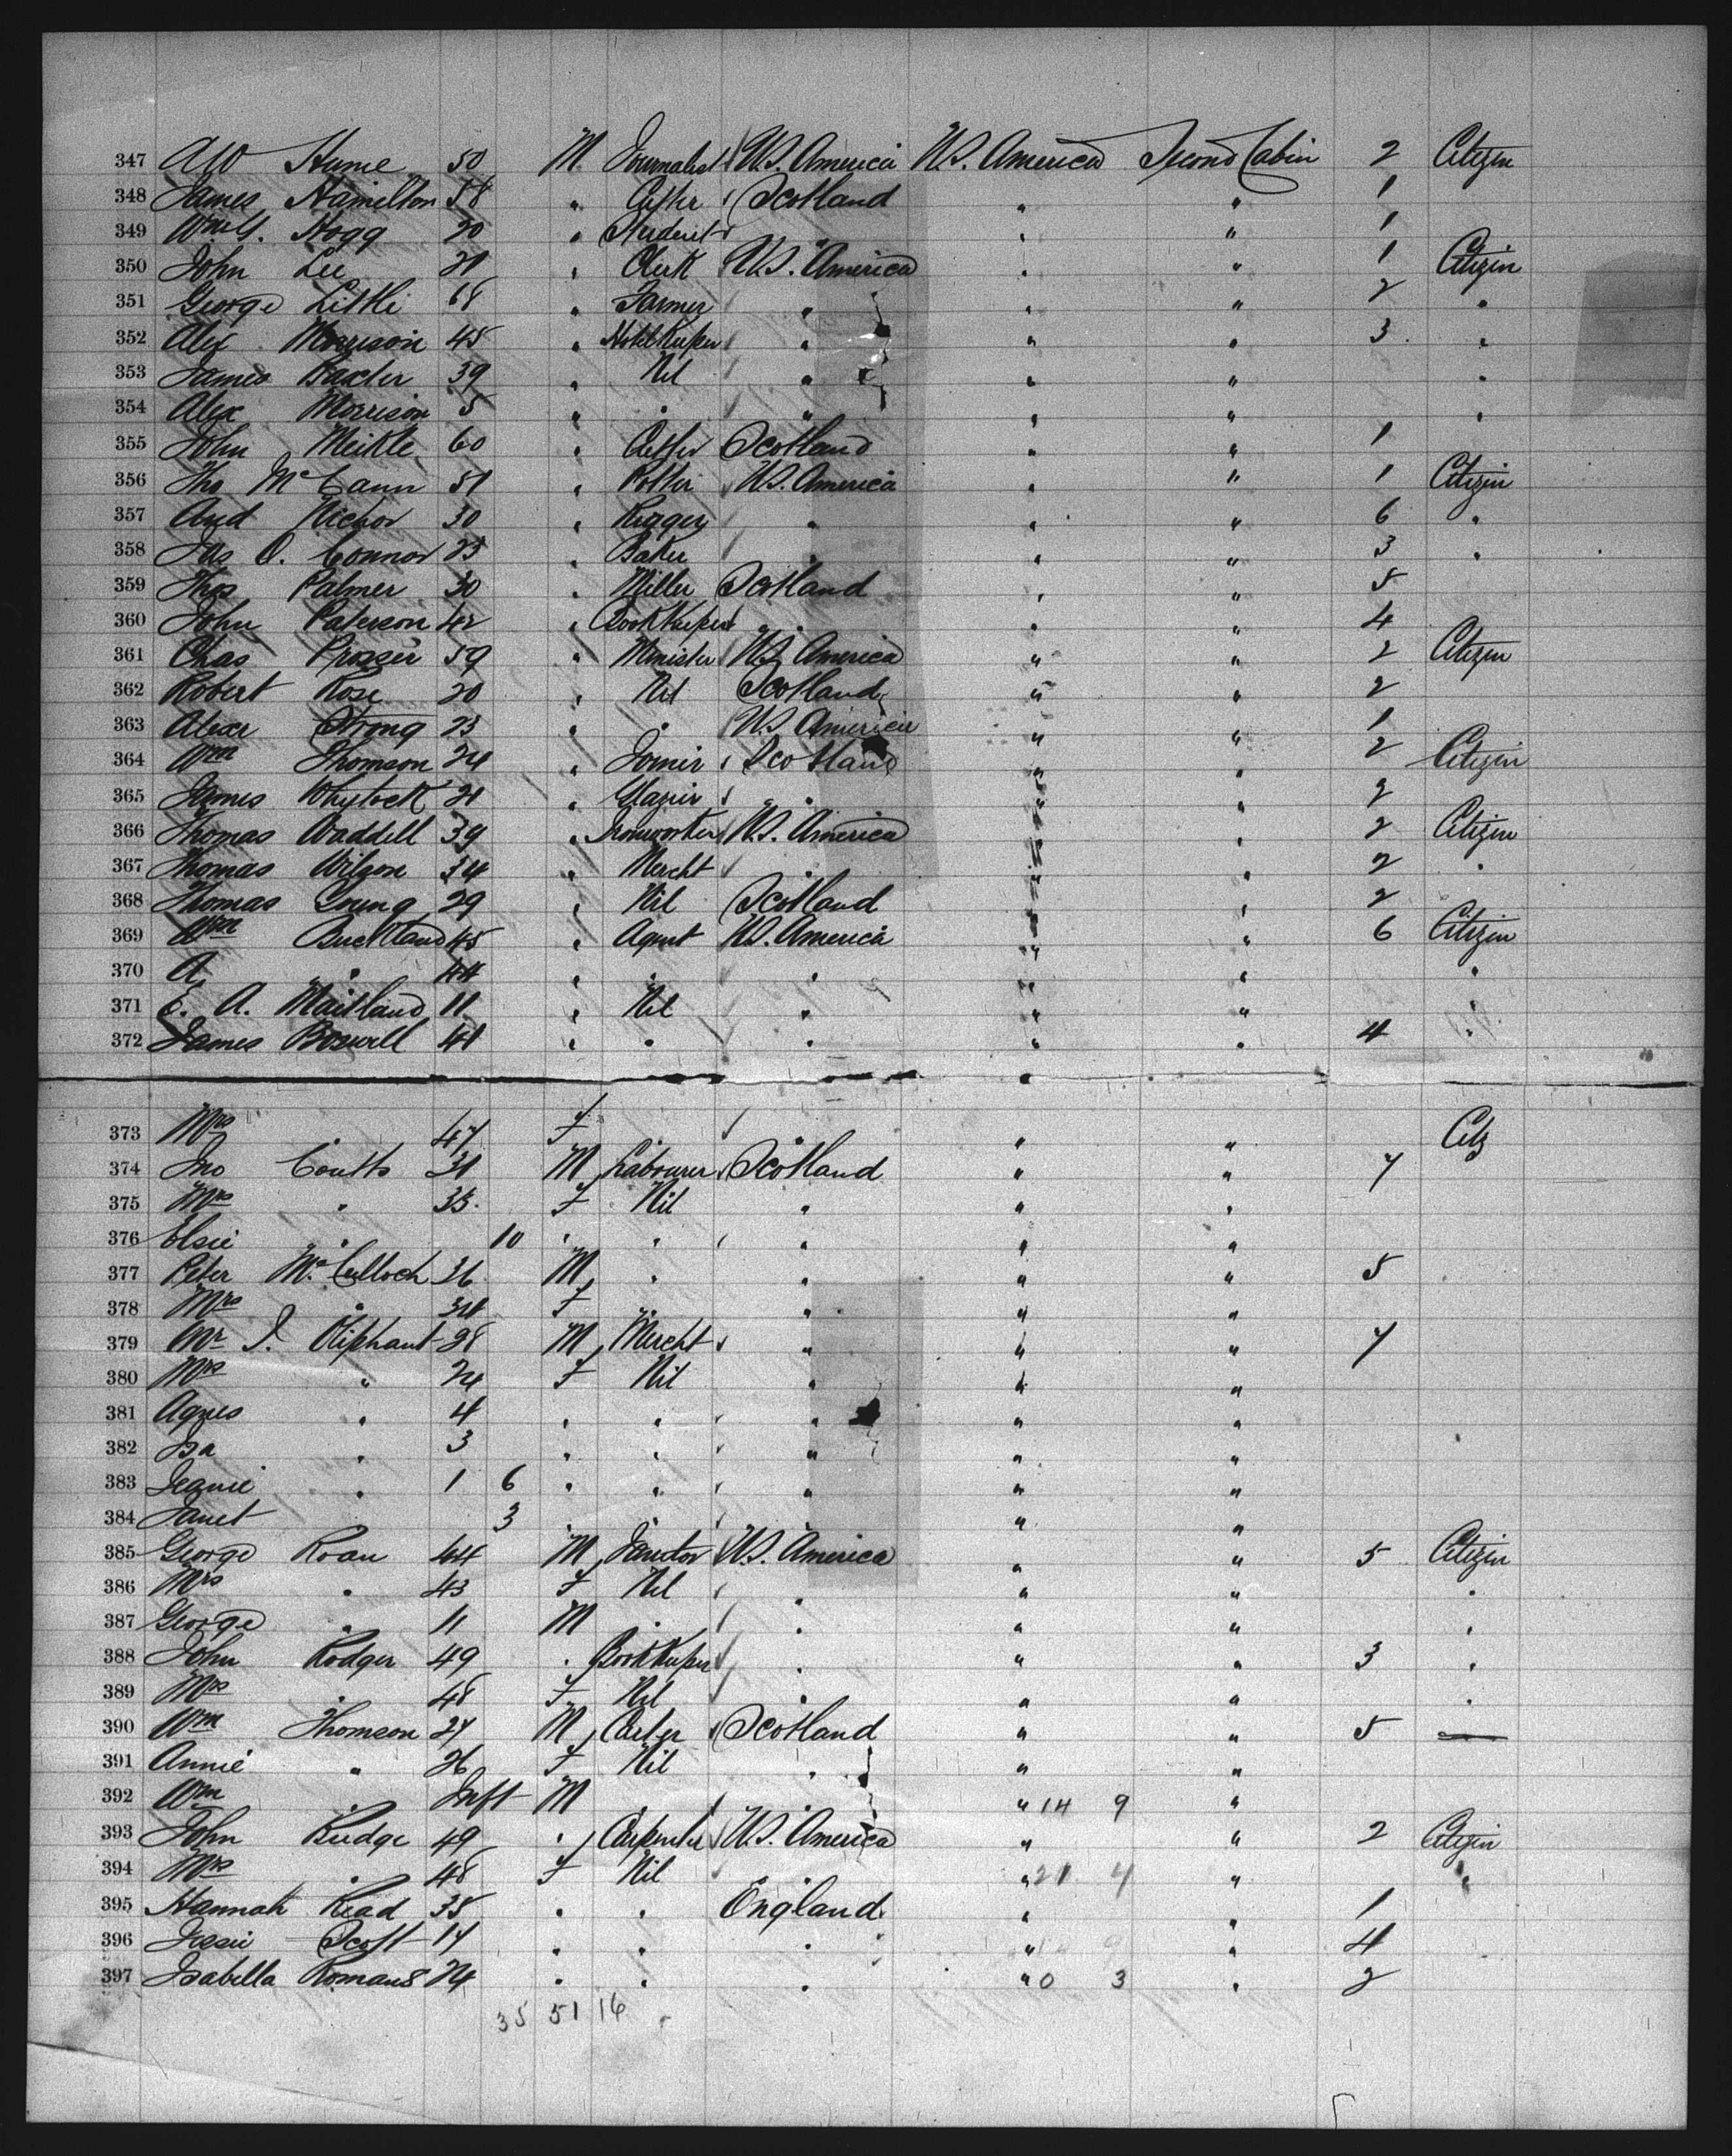 347 AW Hume 50 M Journalist U.S. America U.S. America Second Cabin 2 Citizen
348 James Hamilton 58 " Scotland " " 1
349 Wm Hogg 20 " Student " " 1
350 John Lee 21 " Clerk U.S. America " " 1 Citizen
351 George Little 68 " Farmer " " " 2 "
352 Alex Morrison 45 " Hotel Keeper " " " 3 "
353 James Baxter 39 " Nil " " " "
354 Alex Morrison 5 " " " " " "
355 John Meikle 60 " Scotland " " 1
356 Tho McCann 51 " Potter U.S. America " " 1 Citizen
357 And Nichol 30 " Rigger " " " 6 "
358 Jas O. Connor 23 " Baker " " " 3 "
359 Thos Palmer 30 " Miller Scotland " " 5
360 John Paterson 42 " Book Keeper " " " 4
361 Chas Prosser 59 " Minister U.S. America " " 2 Citizen
362 Robert Rose 20 " Nil Scotland " " 2
363 Alexr Strong 23 " " U.S. America " " 1
364 Wm Thomson 24 " Joiner Scotland " " 2 Citizen
365 James Whytock 21 " Glazier " " " 2
366 Thomas Waddell 39 " Ironworker U.S. America " " 2 Citizen
367 Thomas Wilson 34 " Mercht " " " 2 "
368 Thomas Young 29 " Nil Scotland " " 2
369 Wm Buckland 45 " Agent U.S. America " " 6 Citizen
370 A " 44 " " " " " "
371 E. A. Maitland 11 " Nil " " " "
372 James Boswell 41 " " " " " 4 "
373 Mrs " 47 F " " " Citz
374 Jno Coutts 31 M Labourer Scotland " " 7
375 Mrs " 35 F Nil " " "
376 Elsie " 10 " " " " "
377 Peter McCulloch 36 M " " " " 5
378 Mrs " 34 F " " " "
379 Mr J. Oliphant 28 M Mercht " " " 7
380 Mrs " 24 F Nil " " "
381 Agnes " 4 " " " " "
382 Isa " 3 " " " " "
383 Jeanie " 1 6 " " " " "
384 Janet " 3 " " " " "
385 George Roan 44 M Janitor U.S. America " " 5 Citizen
386 Mrs " 43 F Nil " " " "
387 George " 11 M " " " " "
388 John Rodger 49 " Book Keeper " " " 3 "
389 Mrs " 48 F Nil " " " "
390 Wm Thomson 27 M Carter Scotland " " 5 —
391 Annie " 26 F Nil " " "
392 Wm " Inft M " " " 14 9 "
393 John Rudge 49 " Carpenter U.S. America " " 2 Citizen
394 Mrs " 48 F Nil " 21 4 " "
395 Hannah Read 35 " " England " " 1
396 Jessie Scott 17 " " " " " 4
397 Isabella Romans 24 " " " " 0 3 " 2
35 51 16